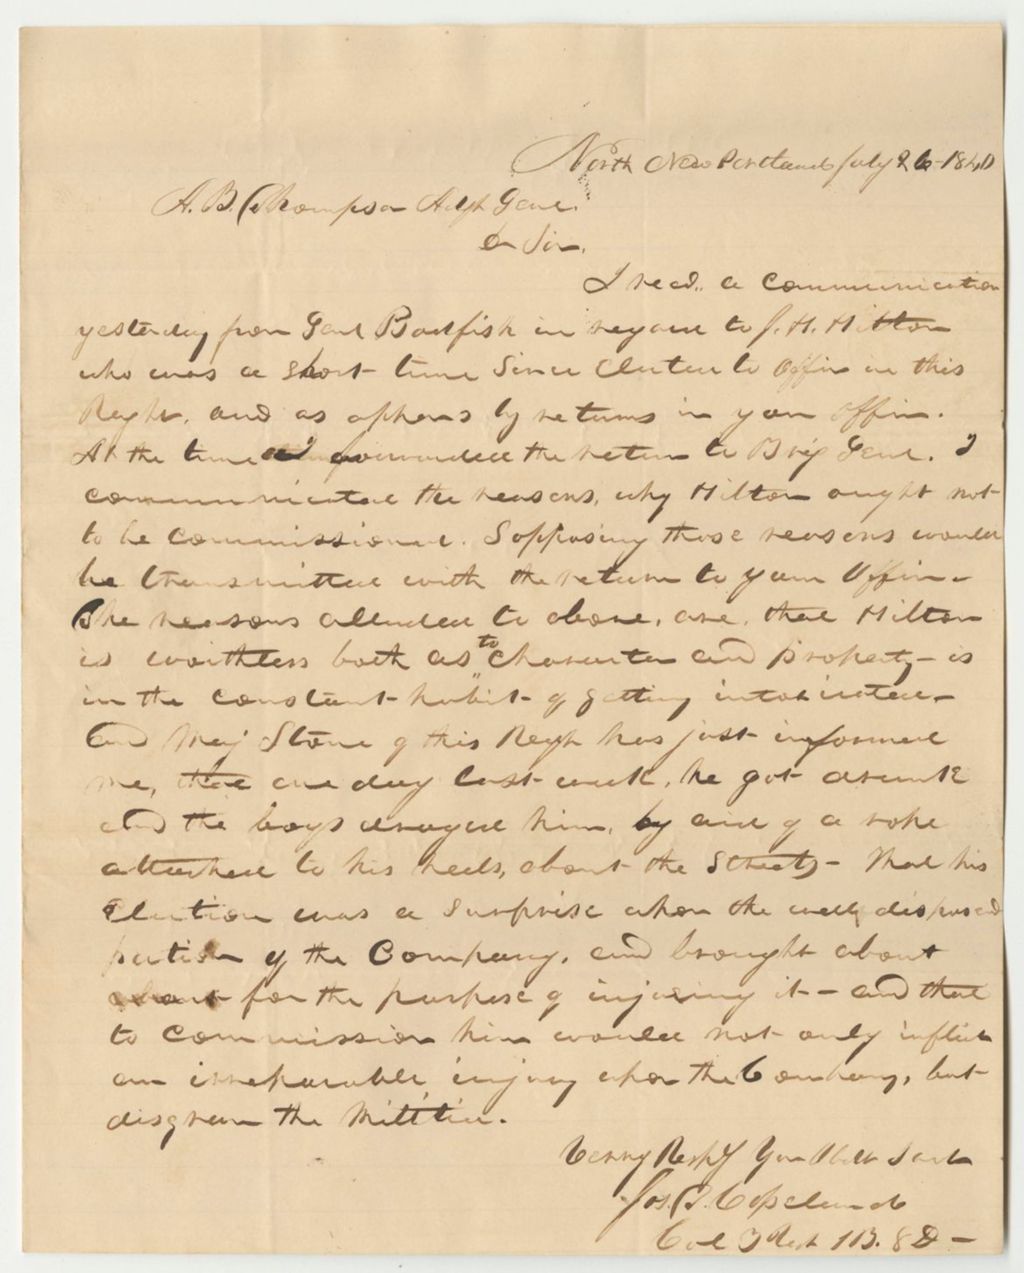 North New Portland July 26 1840
A. B. Thompson Adjt Genl.
Dr Sir,
I recd. a communication
yesterday from Genl Bodfish in regard to J. H. Hilton
who was a short time since elected to office in this
Regt. and as appears by returns in your office.
At the time I forwarded the return to Brig Genl. I
communicated the reasons, why Hilton ought not
to be commissioned. Supposing those reasons would
be transmitted with the return to your Office.
The reasons alluded to above, are, that Hilton
is worthless both as to character and property - is
in the constant habit of getting intoxicated -
and Maj Stone of this Regt has just informed
me, that one day last week, he got drunk
and the boys draged him, by aid of a rope
attached to his heels, about the Streets - That his
Election was a surprise upon the well disposed
portion of the Company, and brought about
for the purpose of injuring it - and that
to commission him would not only inflict
an irreparable injury upon the Company, but
disgrace the Militia.
Verry Respf Your Obdt Servt
Jos. T. Copeland
Col 3 Regt 1 B. 8 D -